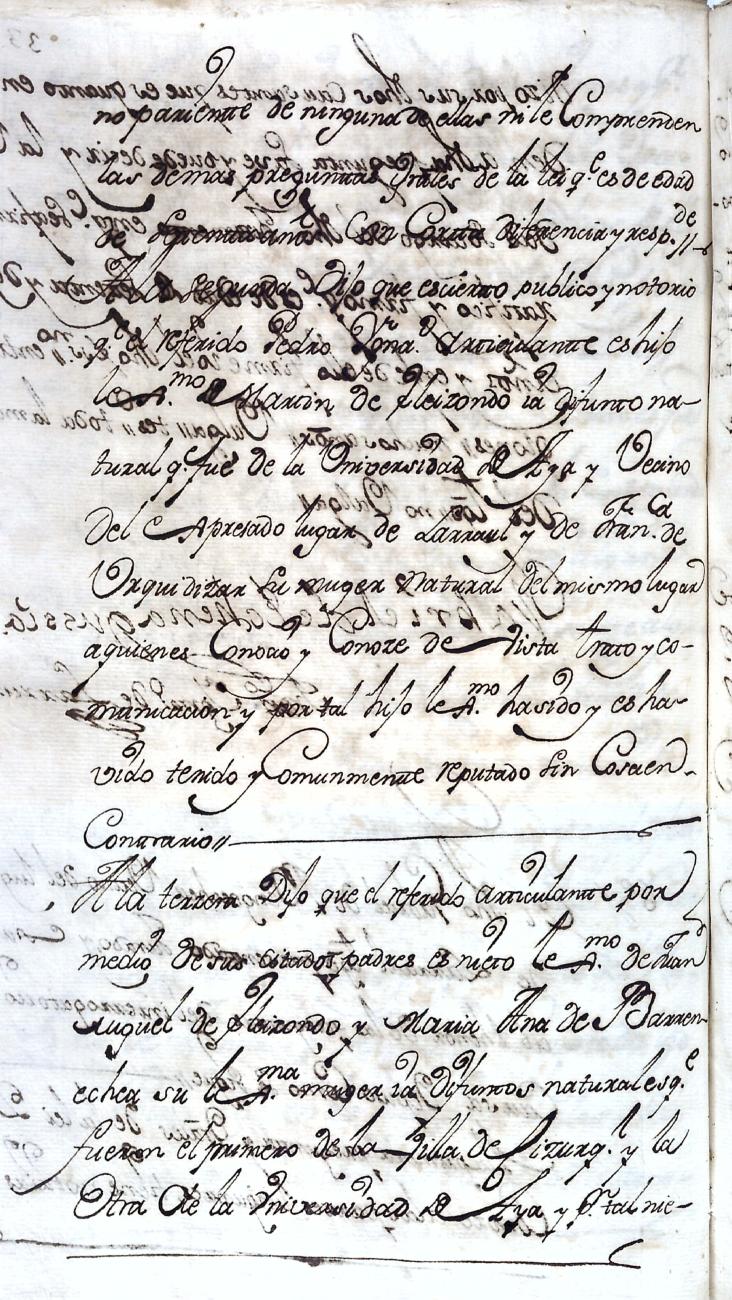 no parientte de ninguna de ellas ni le Comprenden
las demas preguntas Grãles de la lei q.e es de edad
de settenta años Con Corta diferencia y resp.de //
A la segunda Dijo que es cierto publico y notorio
q.e el referido Pedro Articulantte es hijo
le A.mo de Martin de Eleizondo ia difunto na-
tural q.e fue de la Universidad de Aya y Vecino
del Apresado lugar de Larraul y de Fran.ca de
Urquidizar su muger Natural del mismo lugar
a quienes Conocio y Conoze de Vista trato y co-
municacion y por tal hijo le A.mo ha sido y es ha-
vido tenido y Comunmentte reputado sin Cosa en
Contrario //
A la terzera Dijo que el referido articulantte por
medio de sus citados padres es nieto le A.mo de Juan
Miguel de Eleizondo y Maria Ana de Barren-
echea su le A.ma muger ia difuntos naturales q.e
fueron el primero de la Villa de Lizurq.l y la
Otra de la Universidad de Aya y p.r tal nie-